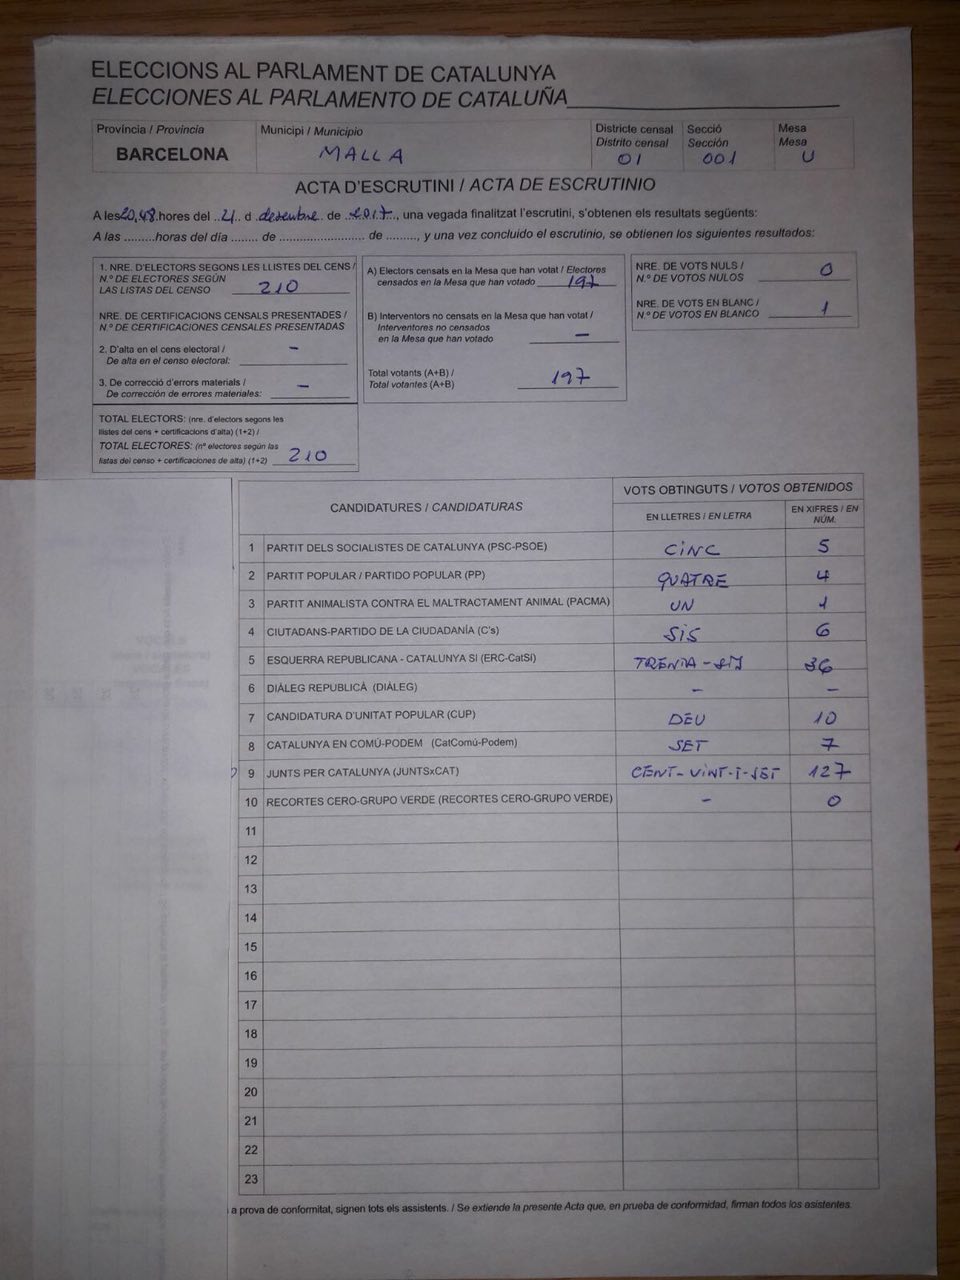 ELECCIONS AL PARLAMENT DE CATALUNYA
ELECCIONES AL PARLAMENTO DE CATALUÑA
Província / Provincia
BARCELONA
Municipi / Municipio
MALLA
Districte censal
Distrito censal
01
Secció
Sección
001
Mesa
Mesa
U
ACTA D'ESCRUTINI / ACTA DE ESCRUTINIO
A les 20,48 hores del ..21.. d .desembre. de .2017., una vegada finalitzat l'escrutini, s'obtenen els resultats següents:
A las .........horas del día ....... de ........................ de ........, y una vez concluido el escrutinio, se obtienen los siguientes resultados:
1. NRE. D'ELECTORS SEGONS LES LLISTES DEL CENS /
N.º DE ELECTORES SEGÚN
LAS LISTAS DEL CENSO 210
NRE. DE CERTIFICACIONS CENSALS PRESENTADES /
N.º DE CERTIFICACIONES CENSALES PRESENTADAS
2. D'alta en el cens electoral / -
De alta en el censo electoral:
3. De correcció d'errors materials / -
De corrección de errores materiales:
TOTAL ELECTORS: (nre. d'electors segons les
llistes del cens + certificacions d'alta) (1+2) /
TOTAL ELECTORES: (nº electores según las
listas del censo + certificaciones de alta) (1+2) 210
A) Electors censats en la Mesa que han votat / Electores
censados en la Mesa que han votado 197
B) Interventors no censats en la Mesa que han votat /
Interventores no censados
en la Mesa que han votado -
Total votants (A+B) /
Total votantes (A+B) 197
NRE. DE VOTS NULS /
N.º DE VOTOS NULOS 0
NRE. DE VOTS EN BLANC /
N.º DE VOTOS EN BLANCO 1
CANDIDATURES / CANDIDATURAS
VOTS OBTINGUTS / VOTOS OBTENIDOS
EN LLETRES / EN LETRA
EN XIFRES / EN NÚM.
1 PARTIT DELS SOCIALISTES DE CATALUNYA (PSC-PSOE) CINC 5
2 PARTIT POPULAR / PARTIDO POPULAR (PP) QUATRE 4
3 PARTIT ANIMALISTA CONTRA EL MALTRACTAMENT ANIMAL (PACMA) UN 1
4 CIUTADANS-PARTIDO DE LA CIUDADANÍA (C's) SIS 6
5 ESQUERRA REPUBLICANA - CATALUNYA SÍ (ERC-CatSí) TRENTA-SIS 36
6 DIÀLEG REPUBLICÀ (DIÀLEG) - -
7 CANDIDATURA D'UNITAT POPULAR (CUP) DEU 10
8 CATALUNYA EN COMÚ-PODEM (CatComú-Podem) SET 7
9 JUNTS PER CATALUNYA (JUNTSxCAT) CENT-VINT-I-SET 127
10 RECORTES CERO-GRUPO VERDE (RECORTES CERO-GRUPO VERDE) - 0
11
12
13
14
15
16
17
18
19
20
21
22
23
a prova de conformitat, signen tots els assistents. / Se extiende la presente Acta que, en prueba de conformidad, firman todos los asistentes.